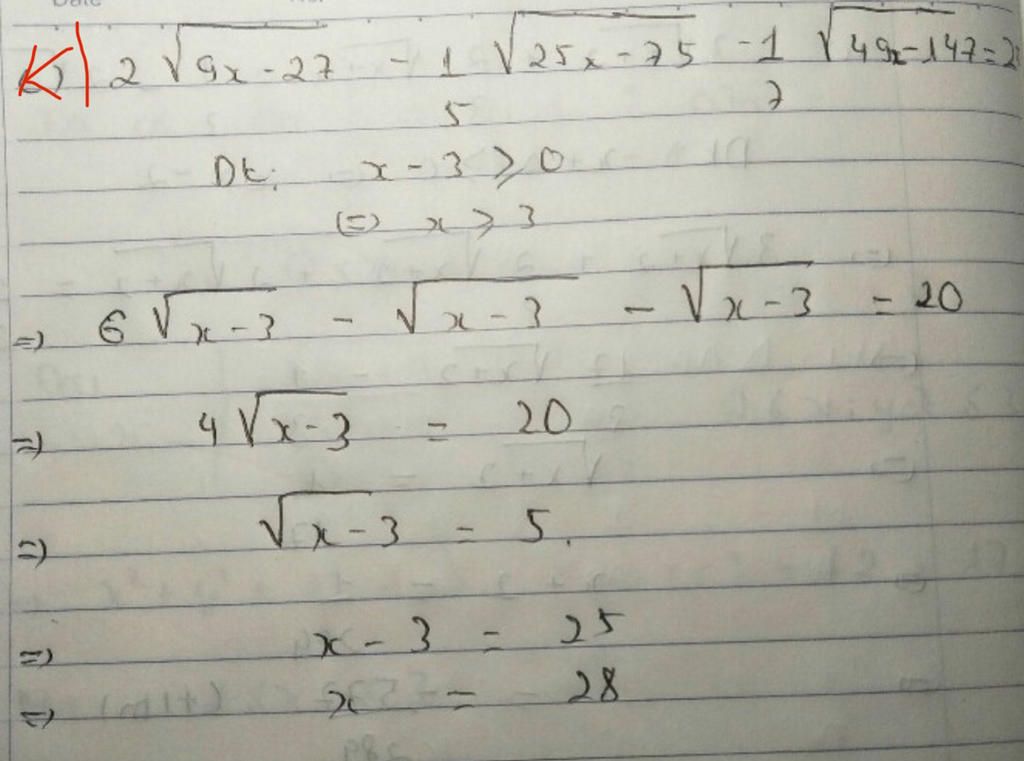 K) 2 √(9x - 27) - 1/5 √(25x - 75) - 1/7 √(49x - 147) = 2
Đk: x - 3 ⩾ 0
(=) x ⩾ 3
=) 6 √(x - 3) - √(x - 3) - √(x - 3) = 20
=) 4 √(x - 3) = 20
=) √(x - 3) = 5.
=) x - 3 = 25
=) x = 28